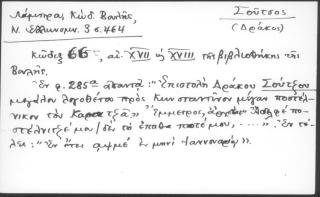 Λάμπρος Κώδ. Βουλῆς, Σοῦτσος
Ν. Ἑλληνομν. 3 σ. 464 (Δράκος)
Κῶδιξ 66, αἰ. XVII ἢ XVIII τῆς βιβλιοθήκης τῆς
Βουλῆς.
Ἐν φ. 285α ἀπαντᾷ: "Ἐπιστολὴ Δράκου Σούτζου
μεγάλου λογοθέτου πρὸς Κωνσταντῖνον μέγαν ποστέλ-
νικον τὸν Καρατζᾶ» "Ἔμμετρος, ἀρχ. Ἀδελφὲ πο-
στέλνικέ μου / δὲν τὸ ἔπαθα ποτέ μου, ...." Ἐν τέ-
λει: "Ἐν ἔτει αψμε ἐν μηνὶ Ἰαννουαρίῳ".